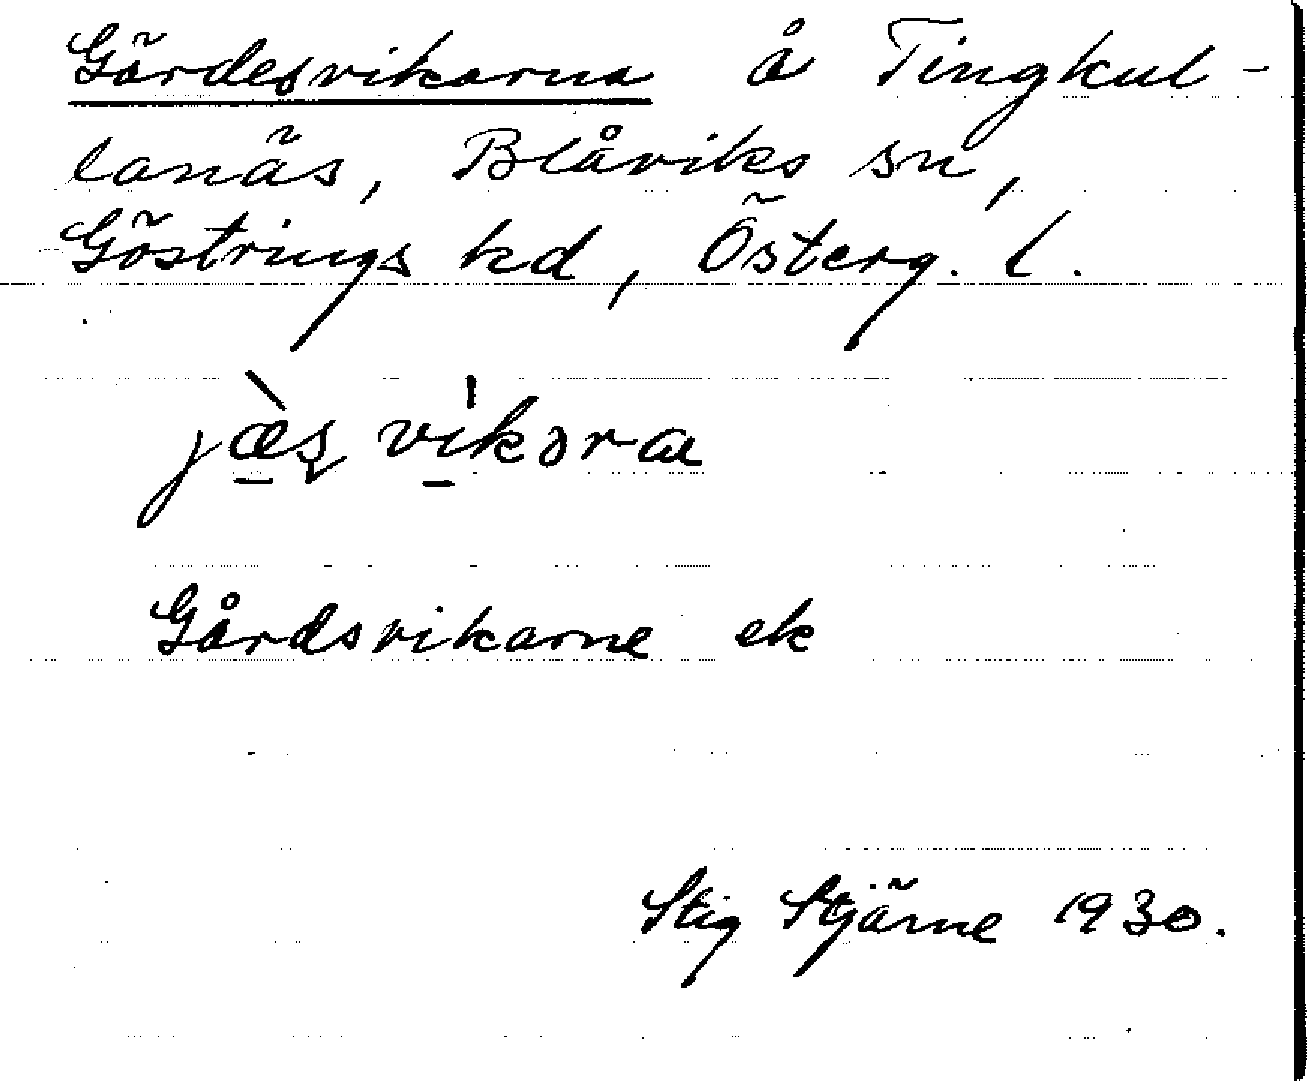 Gärdesvikarna å Tingkul-
lanäs, Blåviks sn,
Göstrings hd, Österg. l.
jæ̀ʂ víkɔra
Gårdsvikarne ek
Stig Stjärne 1930.